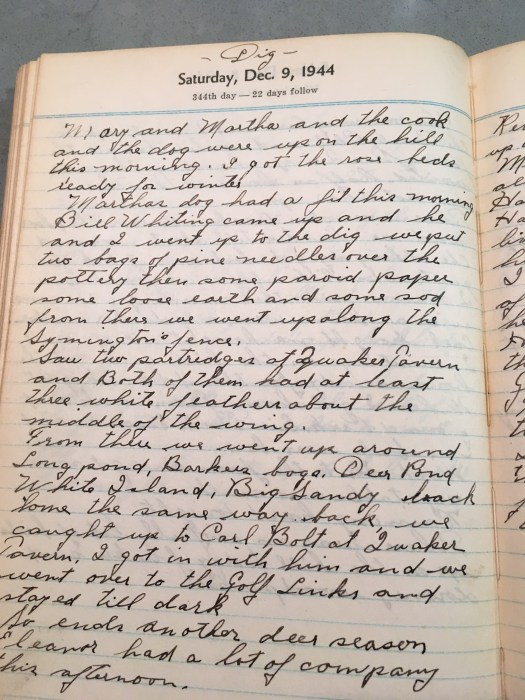 - Dig -
Saturday, Dec. 9, 1944
344th day — 22 days follow
Mary and Martha and the cook
and the dog were up on the hill
this morning. I got the rose beds
ready for winter
Marthas dog had a fit this morning
Bill Whiting came up and he
and I went up to the dig we put
two bags of pine needles over the
pottery then some paroid paper
some loose earth and some sod
from there we went up along the
Symington's fence.
Saw two partridges at Quaker Tavern
and Both of them had at least
three white feathers about the
middle of the wing.
From there we went up around
Long pond, Barkers bogs, Deer Pond
White Island, Big Sandy back
home the same way back, we
caught up to Carl Bolt at Quaker
Tavern, I got in with him and we
went over to the Golf Links and
stayed till dark
So ends another deer season
Eleanor had a lot of company
this afternoon.